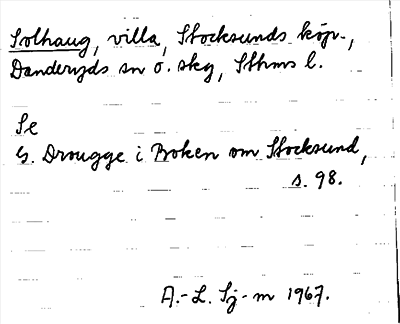 Solhaug, villa, Stocksunds köp.,
Danderyds sn o. skg, Sthms l.
Se
G. Drougge i Boken om Stocksund,
s. 98.
A.-L. Sj-m 1967.